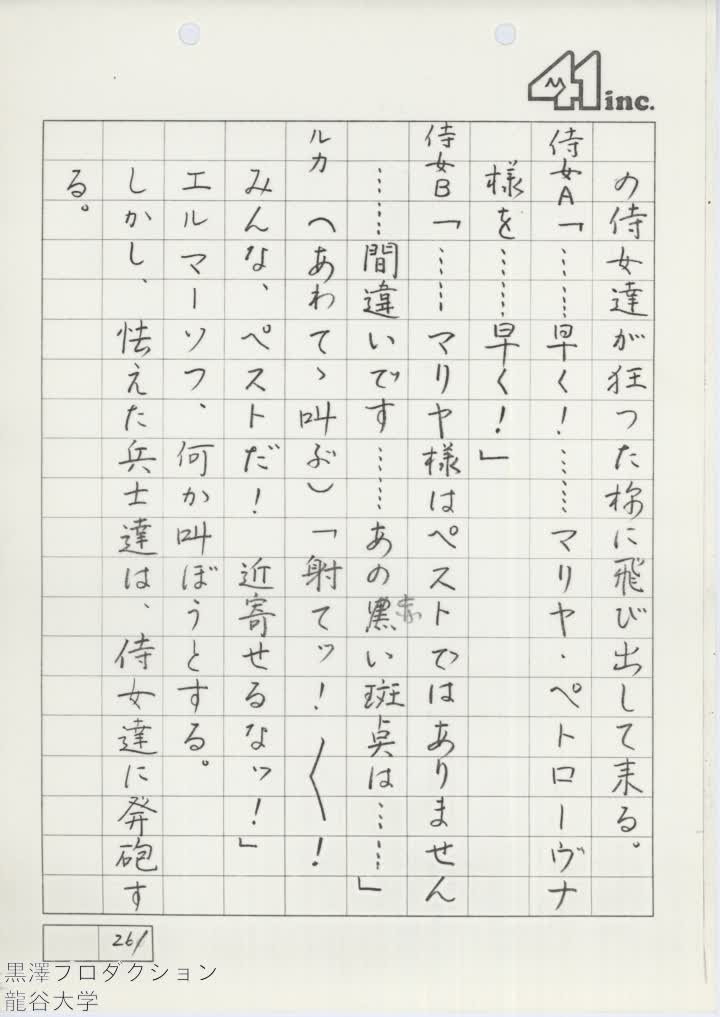 41 inc.
の侍女達が狂った様に飛び出して来る。
侍女A「……早く！……マリヤ・ペトローヴナ
様を……早く！」
侍女B「……マリヤ様はペストではありません
……間違いです……あの黒い斑点は……」
赤
ルカ（あわてゝ叫ぶ）「射てッ！〳〵！
みんな、ペストだ！　近寄せるなッ！」
エルマーソフ、何か叫ぼうとする。
しかし、怯えた兵士達は、侍女達に発砲す
る。
261
黒澤プロダクション
龍谷大学